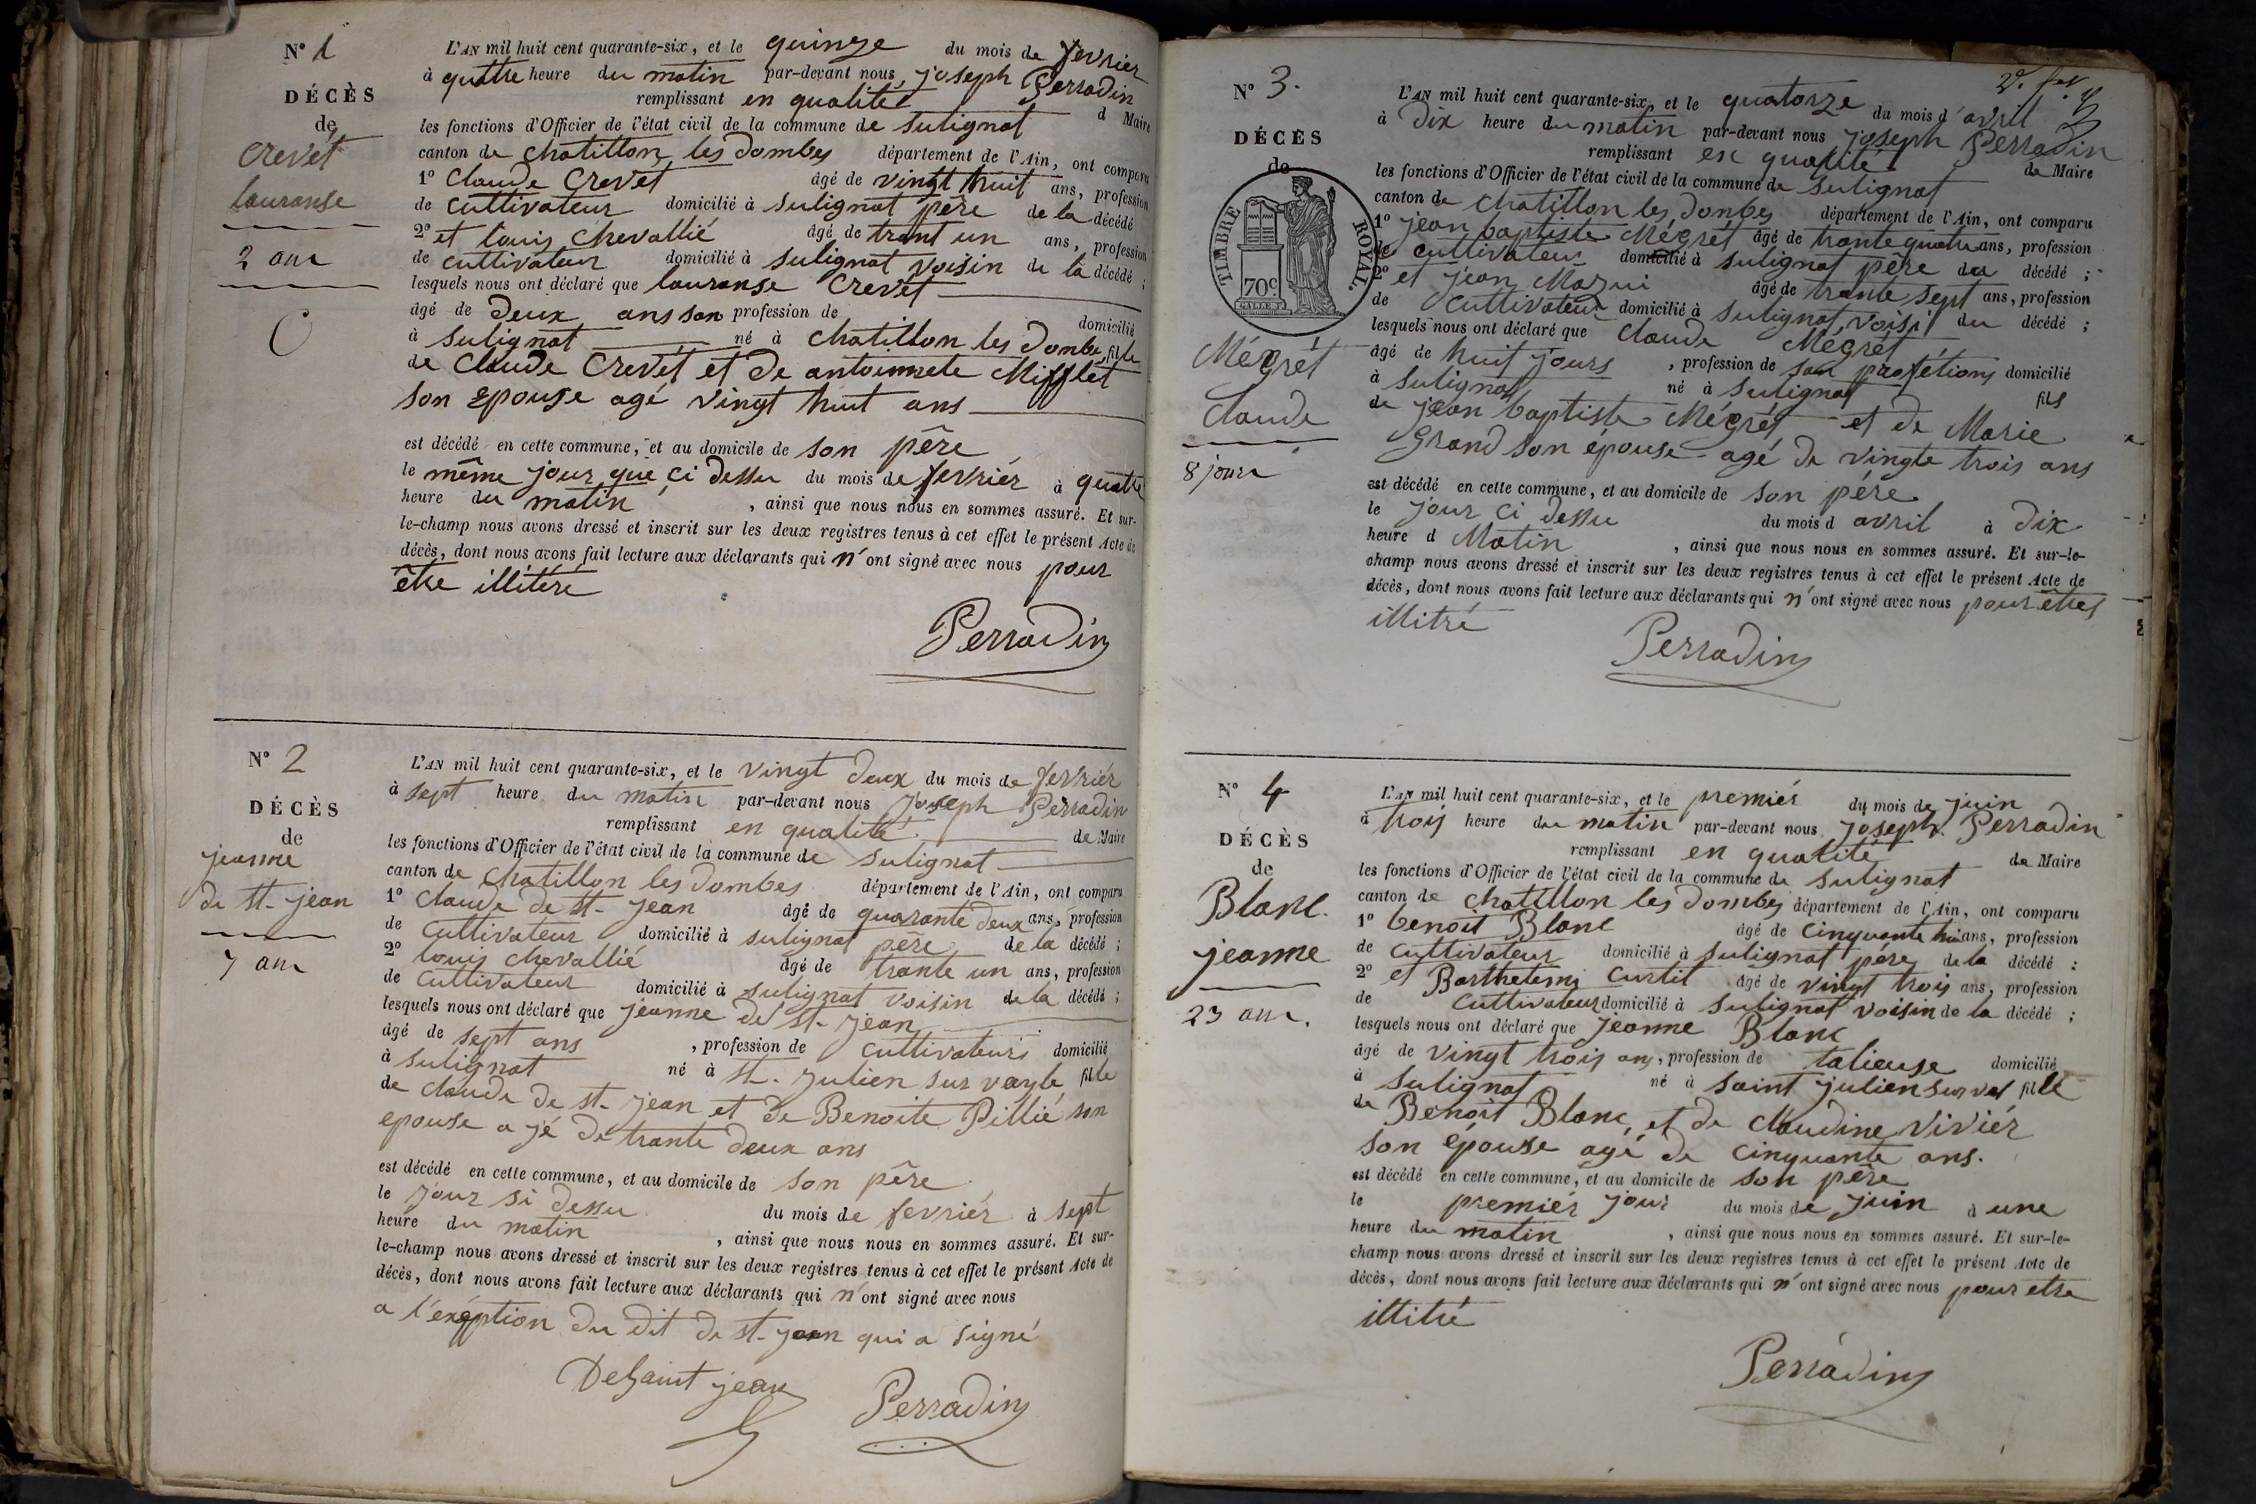 N° 1
DÉCÈS
de
Crevét
lauranse
2 ans
L'AN mil huit cent quarante-six, et le quinze du mois de fevriér
à quattre heure du matin par-devant nous, joseph Perradin
remplissant en qualité d Maire
les fonctions d'Officier de l'état civil de la commune de sulignat
canton de chatillon les dombes département de l'Ain, ont comparu
1° Claude Crevet âgé de vingt huit ans, profession
de cultivateur domicilié à sulignat pêre de la décédé
2° et louis chevallié âgé de trant un ans, profession
de cultivateur domicilié à sulignat voisin de la décédé ;
lesquels nous ont déclaré que lauranse Crevét
âgé de deux ans san profession de domicilié
à sulignat né à chatillon les dombe fille
de Claude Crevét et de antoinnete Mifflet
son epouse agé vingt huit ans
est décédé en cette commune, et au domicile de son pêre
le même jour que ci dessu du mois de fevriér à quatre
heure du matin , ainsi que nous nous en sommes assuré. Et sur-
le-champ nous avons dressé et inscrit sur les deux registres tenus à cet effet le présent Acte de
décès, dont nous avons fait lecture aux déclarants qui n'ont signé avec nous pour
être illitéré
Perradin
N° 2
DÉCÈS
de
jeanne
de st-jean
7 ans
L'AN mil huit cent quarante-six, et le vingt deux du mois de fevriér
à sept heure du matin par-devant nous joseph Perradin
remplissant en qualité de Maire
les fonctions d'Officier de l'état civil de la commune de sulignat
canton de chatillon les dombes département de l'Ain, ont comparu
1° claude de st-jean âgé de quarante deux ans, profession
de cultivateur domicilié à sulignat pêre de la décédé ;
2° louis chevallié âgé de trante un ans, profession
de cultivateur domicilié à sulignat voisin de la décédé ;
lesquels nous ont déclaré que jeanne de st-jean
âgé de sept ans , profession de cultivateurs domicilié
à sulignat né à st. julien sur veyle fille
de claude de st-jean et de Benoite Pillié son
epouse a jé de trante deux ans
est décédé en cette commune, et au domicile de son pêre
le jour si dessu du mois de fevriér à sept
heure du matin , ainsi que nous nous en sommes assuré. Et sur-
le-champ nous avons dressé et inscrit sur les deux registres tenus à cet effet le présent Acte de
décès, dont nous avons fait lecture aux déclarants qui n'ont signé avec nous
a l'exéption du dit de st-jean qui a signé
DeSaint jean Perradin
N° 3.
DÉCÈS
de
TIMBRE ROYAL.
70c
Mégrét
claude
8 jours
L'AN mil huit cent quarante-six, et le quatorze du mois d'avril
à dix heure du matin par-devant nous joseph Perradin
remplissant en qualité de Maire
les fonctions d'Officier de l'état civil de la commune de sulignat
canton de chatillon les donbes département de l'Ain, ont comparu
1° jean baptiste Mégrét âgé de trante quatre ans, profession
de cultivateur domicilié à sulignat pêre du décédé ;
2° et jean Mazui âgé de trante sept ans, profession
de cultivateur domicilié à sulignat, voisi du décédé ;
lesquels nous ont déclaré que claude Mégrét
âgé de huit jours , profession de san profétions domicilié
à sulignat né à sulignat fils
de jean baptiste Mégrét et de Marie
Grand son épouse agé de vingte trois ans
est décédé en cette commune, et au domicile de son pére
le jour ci dessu du mois d avril à dix
heure d Matin , ainsi que nous nous en sommes assuré. Et sur-le-
champ nous avons dressé et inscrit sur les deux registres tenus à cet effet le présent Acte de
décès, dont nous avons fait lecture aux déclarants qui n'ont signé avec nous pour êttes
illitré
Perradin
N° 4
DÉCÈS
de
Blanc.
jeanne
23 ans.
L'AN mil huit cent quarante-six, et le premiér du mois de juin
à trois heure du matin par-devant nous joseph Perradin
remplissant en qualité de Maire
les fonctions d'Officier de l'état civil de la commune de sulignat
canton de chatillon les dombes département de l'Ain, ont comparu
1° benoit Blanc âgé de cinquante huit ans, profession
de cultivateur domicilié à sulignat pére de la décédé :
2° et Barthelemi Curtil âgé de vingt trois ans, profession
de cultivateur domicilié à sulignat voisin de la décédé ;
lesquels nous ont déclaré que jeanne Blanc
âgé de vingt trois ans, profession de talieuse domicilié
à sulignat né à saint julien sur vel fille
de Benoit Blanc, et de claudine Viviér
son épouse agé de cinquante ans.
est décédé en cette commune, et au domicile de son pêre
le premiér jour du mois de juin à une
heure du matin , ainsi que nous nous en sommes assuré. Et sur-le-
champ nous avons dressé et inscrit sur les deux registres tenus à cet effet le présent Acte de
décès, dont nous avons fait lecture aux déclarants qui n'ont signé avec nous pour etre
illitré
Perradin